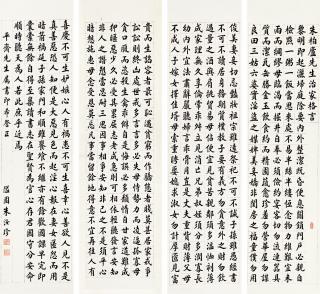 朱柏廬先生治家格言
黎明即起灑掃庭除要內外整潔既昏便息關鎖門戶必親自
檢點一粥一飯當思來處不易半絲半縷恆念物力維艱宜未
雨而綢繆毋臨渴而掘井自奉必須儉約宴客切勿流連器具
質而潔瓦缶勝金玉飲食約而精園蔬愈珍饈勿營華屋勿謀
良田三姑六婆實淫盜之媒婢美妾嬌非閨房之福童僕勿用
俊美妻妾切忌豔妝祖宗雖遠祭祀不可不誠子孫雖愚經書
不可不讀居身務期質樸教子要有義方勿貪意外之財勿飲
過量之酒與肩挑貿易毋佔便宜見貧苦親鄰須加溫恤刻薄
成家理無久享倫常乖舛立見消亡兄弟叔姪須分多潤寡長
幼內外宜法肅辭嚴聽婦言乖骨肉豈是丈夫重貲財薄父母
不成人子嫁女擇佳壻毋索重聘娶媳求淑女勿計厚奩見富
貴而生諂容者最可恥遇貧窮而作驕態者賤莫甚居家戒爭
訟訟則終凶處世戒多言言多必失毋恃勢力而凌逼孤寡毋
貪口腹而恣殺生禽乖僻自是悔誤必多頹惰自甘家道難成
狎暱惡少久必受其累屈志老成急則可相依輕聽發言安知
非人之譖愬當忍耐三思因事相爭安知非我之不是須平心
暗想施惠毋念受恩莫忘凡事當留餘地得意不宜再往人有
喜慶不可生妒嫉心人有禍患不可生喜幸心善欲人見不是
真善惡恐人知便是大惡見色而起淫心報在妻女匿怨而用
暗箭禍延子孫家門和順雖饔飧不繼亦有餘歡國課早完即
囊橐無餘自得至樂讀書志在聖賢為官心存君國守分安命
順時聽天為人若此庶乎近焉
平齋先生屬書即希察正
隘園朱汝珍